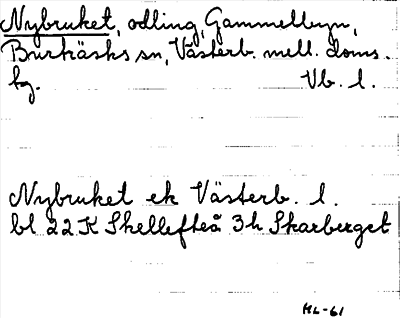 Nybruket, odling, Gammelbyn,
Burträsks sn, Västerb. mell. doms.
hg. Vb. l.
Nybruket ek Västerb. l.
bl 22 K Skellefteå 3h Skarberget
HL-61